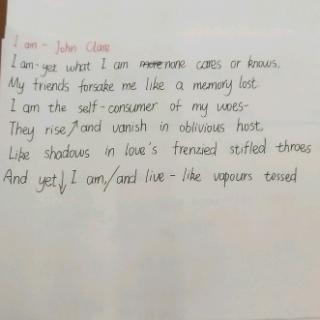 I am - John Clare
I am-yet what I am none cares or knows,
My friends forsake me like a memory lost.
I am the self-consumer of my woes-
They rise↗and vanish in oblivious host,
Like shadows in love's frenzied stifled throes
And yet↓I am,/and live - like vapours tossed